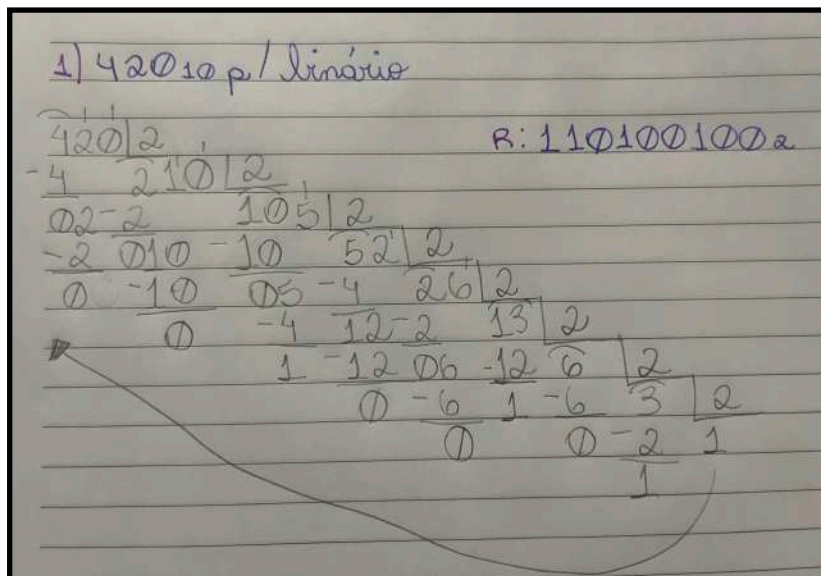 1) 420₁₀ p/ binário
R: 110100100₂
420 2
-4 210 2
02 -2 105 2
-2 010 -10 52 2
0 -10 05 -4 26 2
0 -4 12 -2 13 2
1 -12 06 -12 6 2
0 -6 1 -6 3 2
0 0 -2 1
1